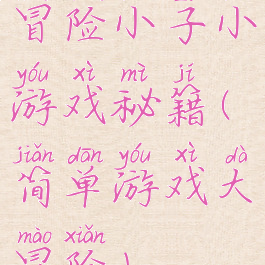 冒险小子小
yóu xì mì jí
游戏秘籍(
jiǎn dān yóu xì dà
简单游戏大
mào xiǎn
冒险)